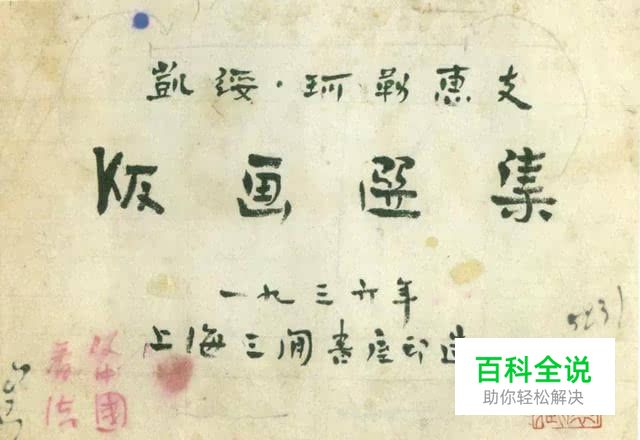 凱綏·珂勒惠支
版画選集
一九三六年
上海三閒書屋印造
5231
百科全说
助你轻松解决